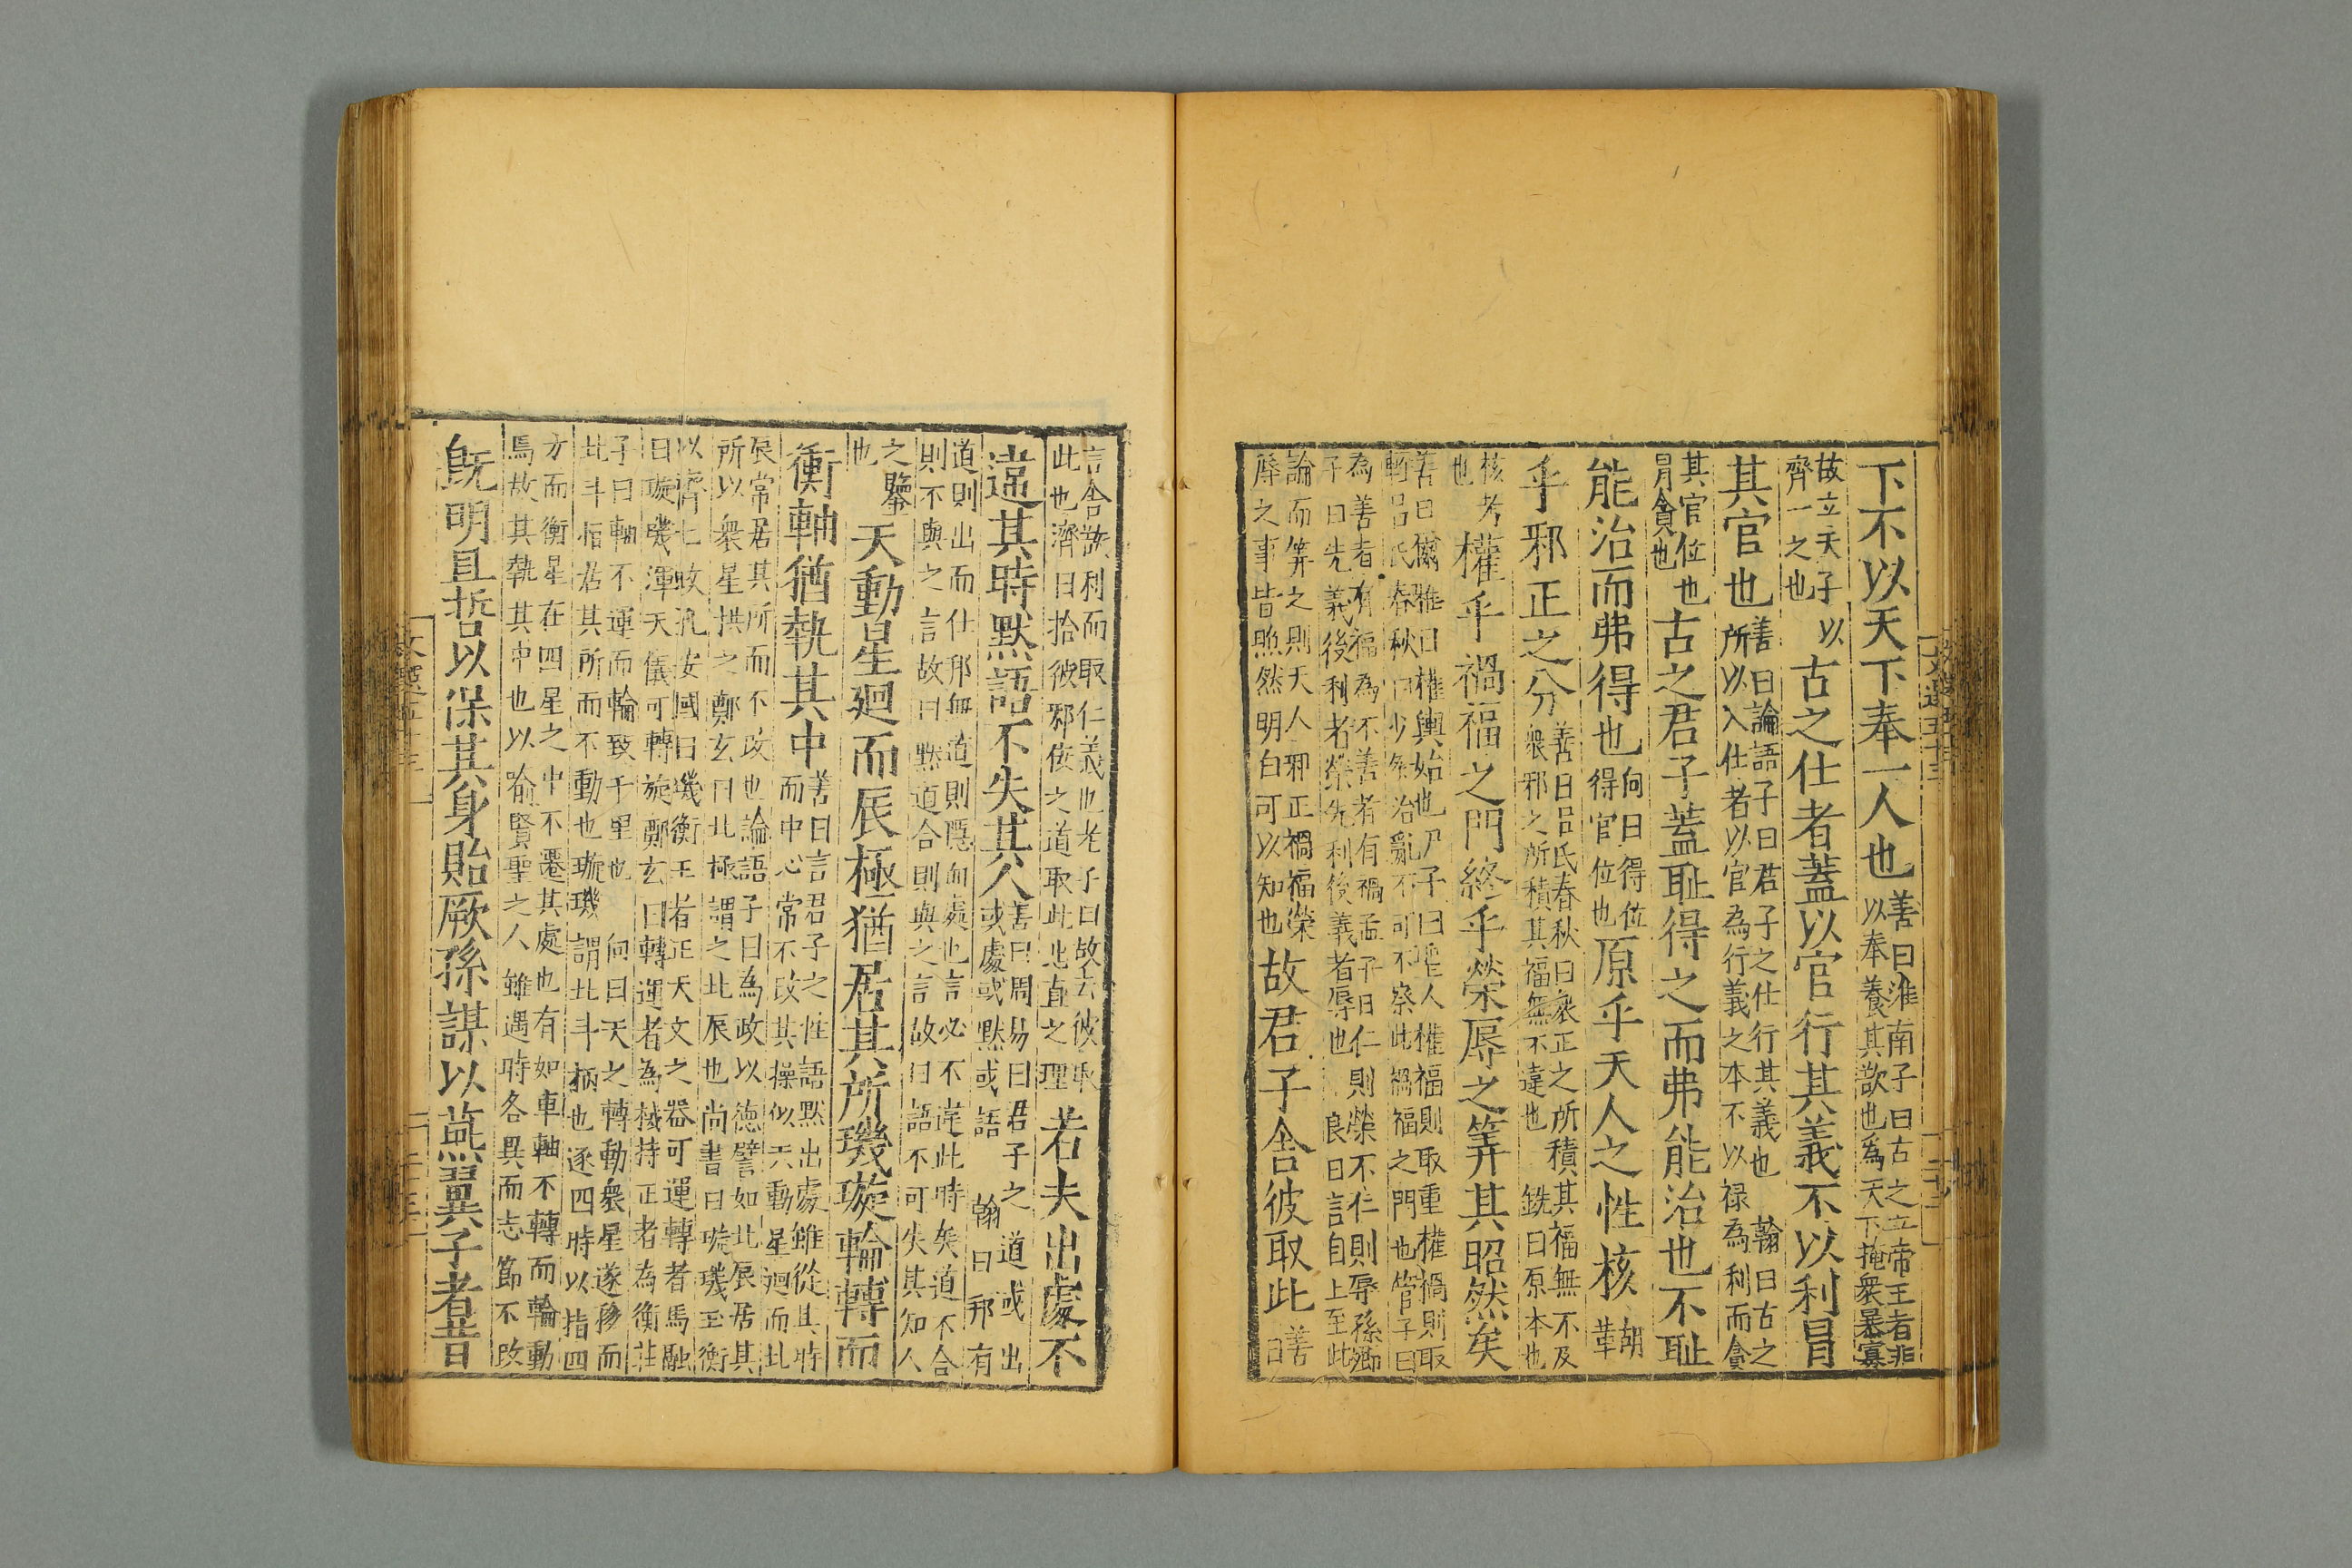 下不以天下奉一人也善曰淮南子曰古之立帝王者非
以奉養其欲也為天下掩衆暴寡
故立天子以
齊一之也古之仕者蓋以官行其義不以利冒
其官也善曰論語子曰君子之仕行其義也翰曰古之
所以入仕者以官為行義之本不以祿為利而貪
其官位也
冐貪也古之君子蓋恥得之而弗能治也不恥
能治而弗得也向曰得位
得官位也原乎天人之性核胡
革
乎邪正之分善曰呂氏春秋曰衆正之所積其福無不及
衆邪之所積其福無不違也銑曰原本也
核考
也權乎禍福之門終乎榮辱之筭其昭然矣
善曰爾雅曰權輿始也尸子曰聖人權福則取重權禍則取
輕呂氏春秋曰少多治亂不可不察此禍福之門也管子曰
為善者有福為不善者有禍孟子曰仁則榮不仁則辱孫卿
子曰先義後利者榮先利後義者辱也良曰言自上至此
論而筭之則天人邪正禍福榮
辱之事皆照然明白可以知也故君子舍彼取此善
曰
言舍欲利而取仁義也老子曰故去彼取
此也濟曰捨彼邪佞之道取此忠直之理若夫出處不
違其時默語不失其人善曰周易曰君子之道或出
或處或默或語翰曰邦有
道則出而仕邦無道則隱而處也言必不違此時矣道不合
則不與之言故曰默道合則與之言故曰語不可失其知人
之鑒
也天動星迴而辰極猶居其所璣璇輪轉而
衡軸猶執其中善曰言君子之性語默出處雖從其時
而中心常不改其操似天動星迴而北
辰常居其所而不改也論語子曰為政以德譬如北辰居其
所以衆星拱之鄭玄曰北極謂之北辰也尚書曰璇璣玉衡
以濟七政孔安國曰璣衡王者正天文之器可運轉者馬融
曰璇璣渾天儀可轉旋鄭玄曰轉運者為機持正者為衡莊
子曰軸不運而輪致千里也向曰天之轉動衆星遂移而
北斗恒居其所而不動也璇璣謂北斗柄也逐四時以指四
方而衡星在四星之中不遷其處也有如車軸不轉而輪動
焉故其執其中也以喻賢聖之人雖遇時各異而志節不改
既明且哲以保其身貽厥孫謀以燕翼子者昔